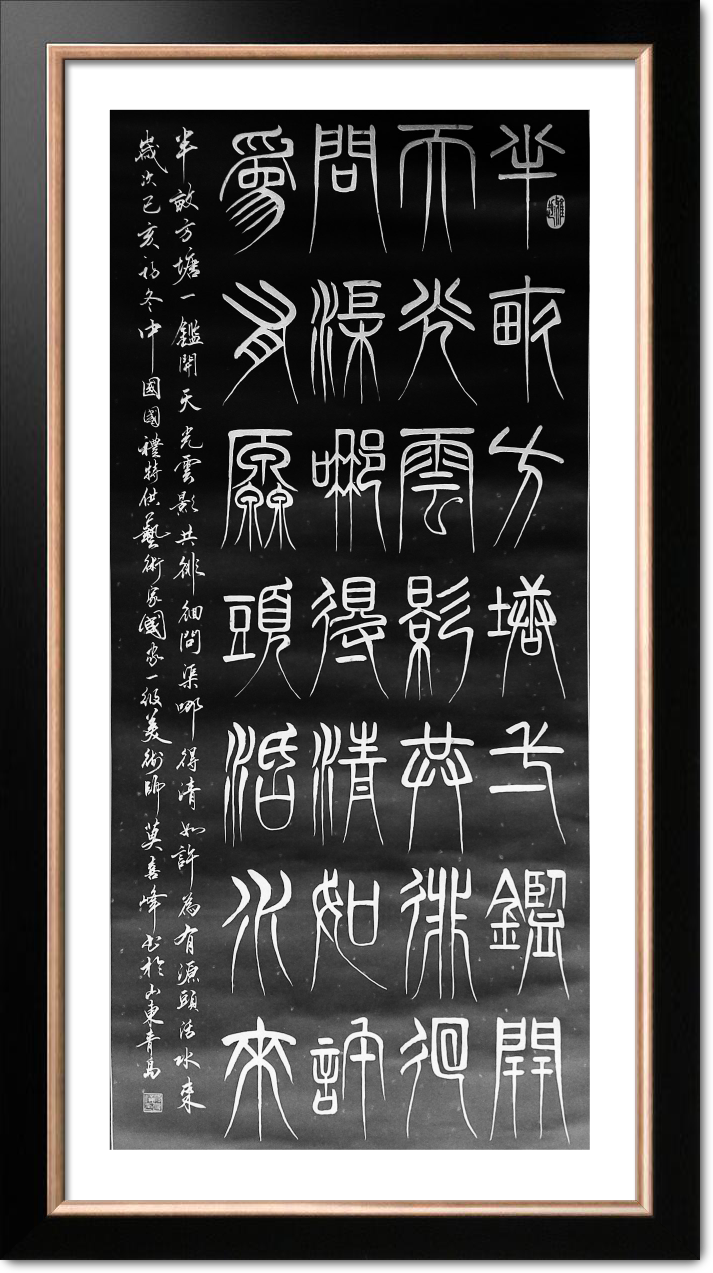 半畝方塘一鑑開
天光雲影共徘徊
問渠哪得清如許
為有源頭活水來
半畝方塘一鑑開天光雲影共徘徊問渠哪得清如許為有源頭活水來
歲次己亥初冬中國國禮特供藝術家國家一級美術師莫喜峰書於山東青島